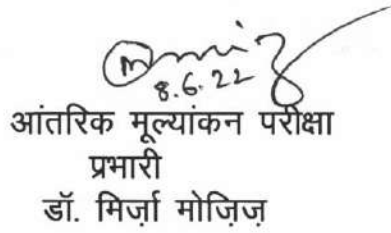 8.6.22
आंतरिक मूल्यांकन परीक्षा
प्रभारी
डॉ. मिर्ज़ा मोज़िज़